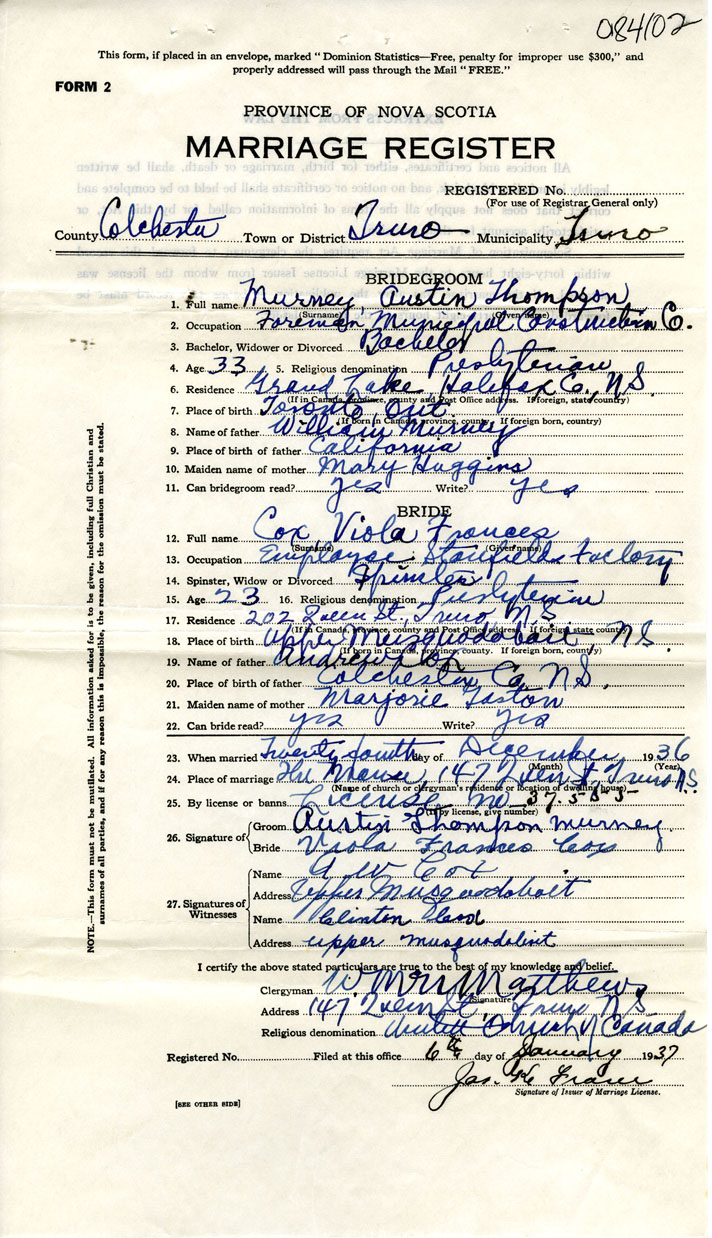 084102
This form, if placed in an envelope, marked "Dominion Statistics—Free, penalty for improper use $300," and
properly addressed will pass through the Mail "FREE."
FORM 2
PROVINCE OF NOVA SCOTIA
MARRIAGE REGISTER
REGISTERED No.
(For use of Registrar General only)
County Colchester Town or District Truro Municipality Truro
BRIDEGROOM
1. Full name Murney, Austin Thompson
(Surname) (Given name)
2. Occupation Foreman Municipal Construction Co.
3. Bachelor, Widower or Divorced Bachelor
4. Age 33 5. Religious denomination Presbyterian
6. Residence Grand Lake Halifax Co., N.S.
(If in Canada, province, county and Post Office address. If foreign, state country)
7. Place of birth Toronto, Ont.
(If born in Canada, province, county. If foreign born, country)
8. Name of father William Murney
9. Place of birth of father California
10. Maiden name of mother Mary Huggins
11. Can bridegroom read? yes Write? yes
BRIDE
12. Full name Cox Viola Frances
(Surname) (Given name)
13. Occupation Employee Stanfields Factory
14. Spinster, Widow or Divorced Spinster
15. Age 23 16. Religious denomination Presbyterian
17. Residence 202 Queen St., Truro, N.S.
(If in Canada, province, county and Post Office address. If foreign state country)
18. Place of birth Upper Musquodoboit, N.S.
(If born in Canada, province, county. If foreign born, country)
19. Name of father Andrew Cox
20. Place of birth of father Colchester Co., N.S.
21. Maiden name of mother Marjorie Gaston
22. Can bride read? yes Write? yes
23. When married Twenty fourth day of December 1936
(Month) (Year)
24. Place of marriage The Manse, 147 Queen St, Truro N.S.
(Name of church or clergyman's residence or location of dwelling house)
25. By license or banns License no 37585
(If by license, give number)
26. Signature of
Groom Austin Thompson Murney
Bride Viola Frances Cox
27. Signatures of Witnesses
Name G W Cox
Address Upper Musquodoboit
Name Clinton
Address upper musquodobit
I certify the above stated particulars are true to the best of my knowledge and belief.
Clergyman W. Matthews
(Signature)
Address 147 Queen St., Truro, N.S.
Religious denomination United Church of Canada
Registered No. Filed at this office 6th day of January 1937
Jas. K. Fraser
Signature of Issuer of Marriage License.
[SEE OTHER SIDE]
NOTE.—This form must not be mutilated. All information asked for is to be given, including full Christian and
surnames of all parties, and if for any reason this is impossible, the reason for the omission must be stated.